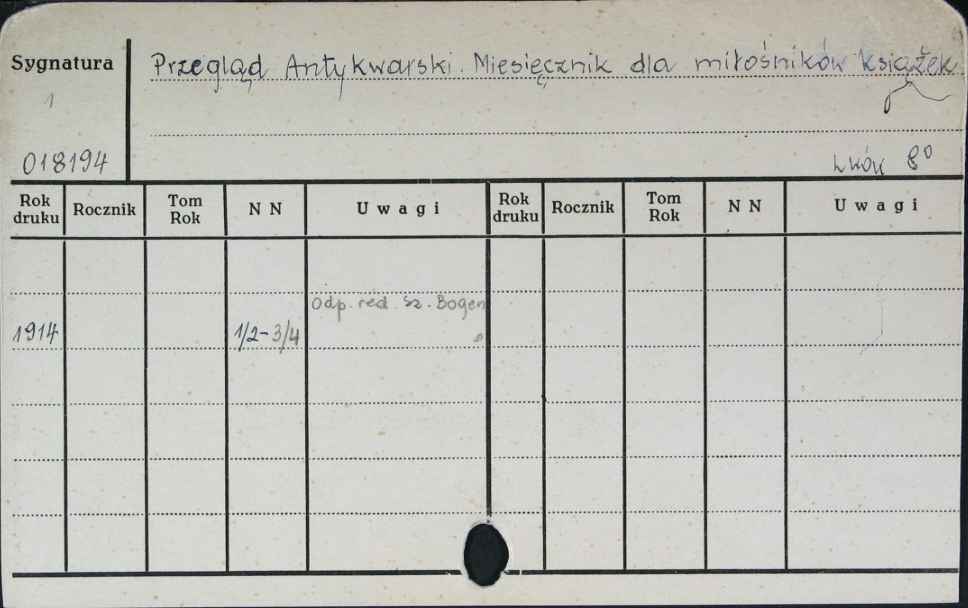 Sygnatura
Przegląd Antykwarski. Miesięcznik dla miłośników książek
1
018194
Lwów 8°
Rok druku Rocznik Tom Rok N N Uwagi Rok druku Rocznik Tom Rok N N Uwagi
Odp. red. Sz. Bogen
1914 1/2-3/4